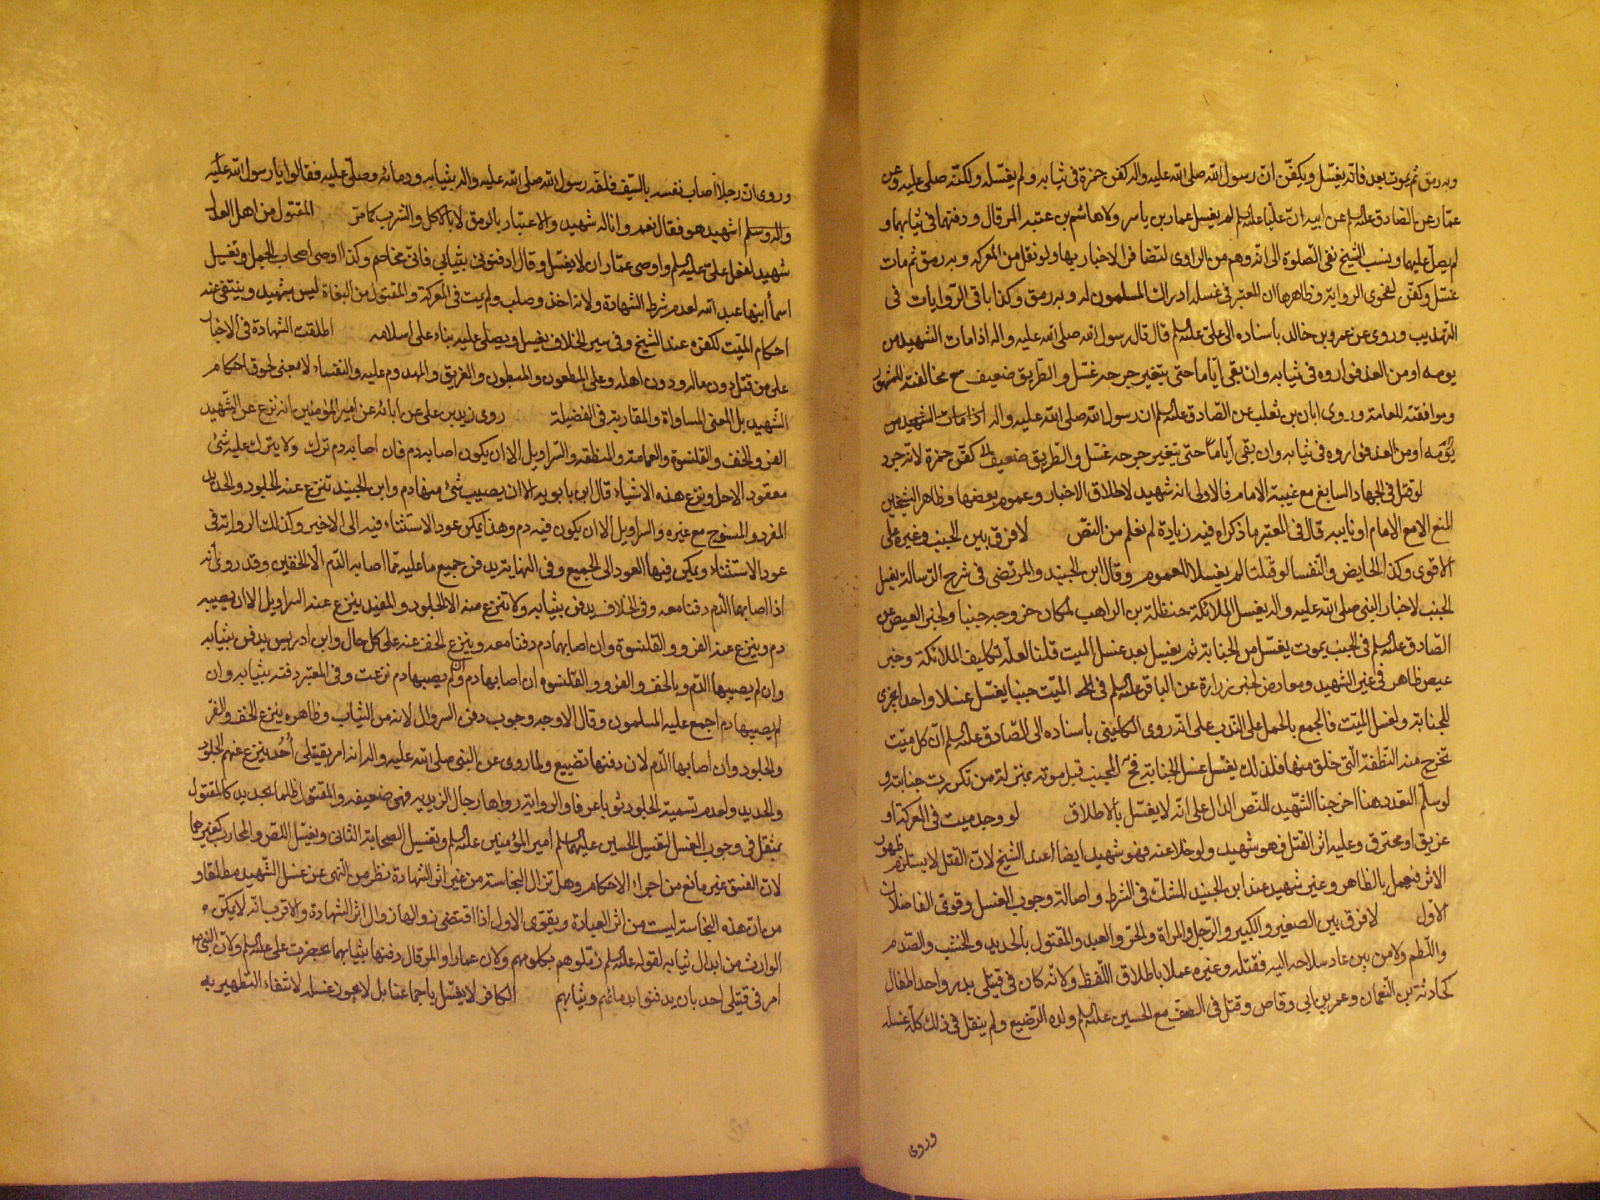 وبه رمق ثم يموت بعد فانه يغسل ويكفن ان رسول الله صلى الله عليه واله كفن حمزة في ثيابه ولم يغسله ولكنه صلى عليه وعن
عمار عن الصادق عليه السلم عن ابيه ان عليا عليه السلم لم يغسل عمار بن ياسر ولا هاشم بن عتبة المرقال ودفنهما في ثيابهما و
لم يصل عليهما ونسب الشيخ نفى الصلوة الى انه وهم من الراوي لتضافر الاخبار بها ولو نقل من المعركة وبه رمق ثم مات
غسل وكفن لفحوى الرواية وظاهرها ان المعتبر في غسله ادراك المسلمون له وبه رمق وكذا باقي الروايات في
التهذيب وروى عن عمرو بن خالد باسناده الى علي عليه السلم قال قال رسول الله صلى الله عليه واله اذا مات الشهيد من
يومه او من الغد فواروه في ثيابه وان بقى اياما حتى يتغير جرحه غسل والطريق ضعيف مع مخالفته للمشهور
وموافقته للعامة وروى ابان بن تغلب عن الصادق عليه السلم ان رسول الله صلى الله عليه واله اذا مات الشهيد من
يومه او من الغد فواروه في ثيابه وان بقى اياما حتى يتغير جرحه غسل والطريق ضعيف كفن حمزة لانه جرد
لو قتل في الجهاد السايغ مع غيبة الامام فالاولى انه شهيد لاطلاق الاخبار وعموم بعضها وظاهر الشيخين
المنع الا مع الامام او نايبه قال في المعتبر ما ذكراه فيه زيادة لم تعلم من النص لا فرق بين الجنب وغيره على
الاقوى وكذا الحايض والنفسا لو قتلت لم يغسلا للعموم وقال ابن الجنيد والمرتضى في شرح الرسالة يغسل
الجنب لاخبار النبي صلى الله عليه واله بغسل الملائكة حنظلة بن الراهب لمكان خروجه جنبا ولخبر العيص عن
الصادق عليه السلم في الجنب يموت يغسل من الجنابة ثم يغسل بعد غسل الميت قلنا لعله لتكليف الملائكة وخبر
عيص ظاهر في غير الشهيد ومعارض لخبر زرارة عن الباقر عليه السلم في الميت جنبا يغسل غسلا واحدا يجزى
للجنابة ولغسل الميت فالجمع بالحمل على الندب على انه روى الكليني باسناده الى الصادق عليه السلم ان كل ميت
تخرج منه النطفة التي خلق منها فلذلك يغسل غسل الجنابة فحـ الجنب قبل موته بمنزلة من تكررت جنابته و
لو سلم التعدد هنا اخرجنا الشهيد للنص الدال على انه لا يغسل بالاطلاق لو وجد ميت في المعركة او
غريق او محترق وعليه اثر القتل فهو شهيد ولو خلا عنه فهو شهيد ايضا عند الشيخ لان القتل لا يستلزم ظهور
الاثر فيعمل بالظاهر وغير شهيد عند ابن الجنيد للشك في الشرط واصالة وجوب الغسل وقوى الفاضلان
الاول لا فرق بين الصغير والكبير والرجل والمراة والحر والعبد والمقتول بالحديد والخشب والصدم
واللطم ولا من بين عاد سلاحه اليه فقتله وغيره عملا باطلاق اللفظ ولانه كان في قتلى بدر واحد اطفال
كحارثة بن النعمان وعمر بن ابي وقاص وقتل في الطف مع الحسين عليه السلم ولده الرضيع ولم ينقل في ذلك كله غسله
وروى
وروى ان رجلا اصاب نفسه بالسيف فلفه رسول الله صلى الله عليه واله بثيابه ودمائه وصلى عليه فقالوا يا رسول الله عليه
واله وسلم اشهيد هو فقال نعم وانا له شهيد والاعتبار بالرمق لا بالاكل والشرب كما مر المقتول من اهل العدل
شهيد لفعل علي عليه السلم واوصى عمار ان لا يغسل وقال ادفنوني بثيابي فاني مخاصم وكذا اوصى اصحاب الجمل وتغسيل
اسما ابنها عبد الله لعدم شرط الشهادة ولانه اخذ وصلب ولم يمت في المعركة والمقتول من البغاة ليس بشهيد وينتفى عنه
احكام الميت لكفره عند الشيخ وفي سير الخلاف يغسل ويصلى عليه بناء على اسلامه اطلقت الشهادة في الاخبار
على من قتل دون ماله ودون اهله وعلى المطعون والمبطون والغريق والمهدوم عليه والنفساء لا معنى لحوق احكام
الشهيد بل المعنى المساواة والمقاربة في الفضيلة روى زيد بن علي عن ابائه عن امير المؤمنين انه ينزع عن الشهيد
الفرو والخف والقلنسوة والعمامة والمنطقة والسراويل الا ان يكون اصابه دم فان اصابه دم ترك ولا يترك عليه شئ
معقود الا حل ونزع هذه الاشياء قال ابن بابويه الا ان يصيب شئ منها دم وابن الجنيد تنزع عنه الجلود والحديد
المفرد والمنسوج مع غيره والسراويل الا ان يكون فيه دم وهذا يمكن عود الاستثناء فيه الى الاخير وكذلك الرواية في
عود الاستثناء ويمكن فيها العود الى الجميع وفي النهاية يدفن جميع ما عليه مما اصابه الدم الا الخفين وقد روى انه
اذا اصابهما الدم دفنا معه وفي الخلاف يدفن بثيابه ولا تنزع منه الا الجلود والمفيد ينزع عنه السراويل الا ان يصيبه
دم وينزع عنه الفرو والقلنسوة وان اصابهما دم دفنا معه وينزع الخف عنه على كل حال وابن ادريس يدفن بثيابه
وان لم يصبها الدم وبالخف والفرو والقلنسوة ان اصابها دم وان لم يصبها دم نزعت وفي المعتبر دفنه بثيابه وان
لم يصبها دم اجمع عليه المسلمون وقال الاوجه وجوب دفن السروال لانه من الثياب وظاهره ينزع الخف والفرو
والجلود وان اصابها الدم لان دفنها تضييع ولما روى عن النبي صلى الله عليه واله انه امر بقتلى احد ينزع عنهم الجلود
والحديد ولعدم تسمية الجلود ثوبا عرفا والرواية رواها رجال الزيدية فهي ضعيفة والمقتول ظلما بحديد كالمقتول
بمثقل في وجوب الغسل لتغسيل الحسين عليهما السلم امير المؤمنين عليه السلم وتغسيل الصحابة الثاني ويغسل اللص والمحارب كغيرهما
لان الفسق غير مانع من اجراء الاحكام وهل تزال النجاسة من غير اثر الشهادة نظر من النهي عن غسل الشهيد مطلقا و
من ان هذه النجاسة ليست من اثر العبادة ويقوى الاول اذا اقتضى زوالها زوال اثر الشهادة والاقرب انه لا يمكن
الوارث من ابدال ثيابه لقوله عليه السلم زملوهم بكلومهم ولان عمارا والمرقال دفنها بثيابهما بحضرة علي عليه السلم ولان النبي
امر في قتلى احد بان يدفنوا بدمائهم وثيابهم الكافر لا يغسل باجماعنا بل لا يجوز غسله لانتفاء التطهير به